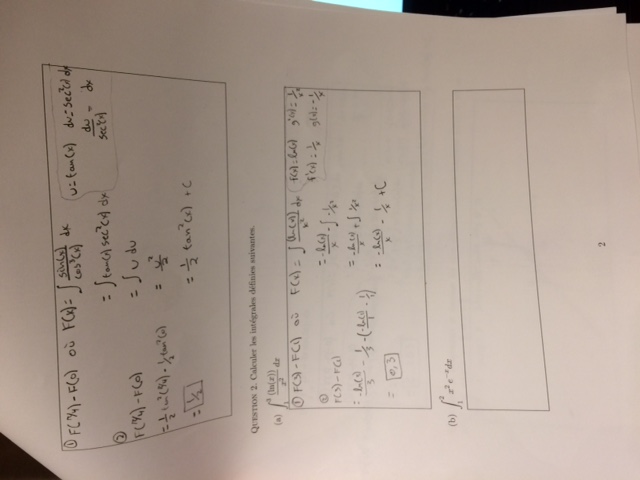 ① F(π/4) - F(0) où F(x) = ∫ sin(x)/cos³(x) dx
u = tan(x) du = sec²(x) dx
du/sec²(x) = dx
= ∫ tan(x) sec²(x) dx
= ∫ u du
= u²/2
= 1/2 tan²(x) + C
②
F(π/4) - F(0)
= 1/2 tan²(π/4) - 1/2 tan²(0)
= 1/2
QUESTION 2. Calculer les intégrales définies suivantes.
(a) ∫₁³ (ln(x))/x² dx
① F(3) - F(1) où F(x) = ∫ ln(x)/x² dx
f(x) = ln(x) g'(x) = 1/x²
f'(x) = 1/x g(x) = -1/x
= -ln(x)/x - ∫ -1/x²
= -ln(x)/x + ∫ 1/x²
= -ln(x)/x - 1/x + C
②
F(3) - F(1)
= -ln(3)/3 - 1/3 - (-ln(1)/1 - 1/1)
= 0,3
(b) ∫₁² x² e⁻ˣ dx
2